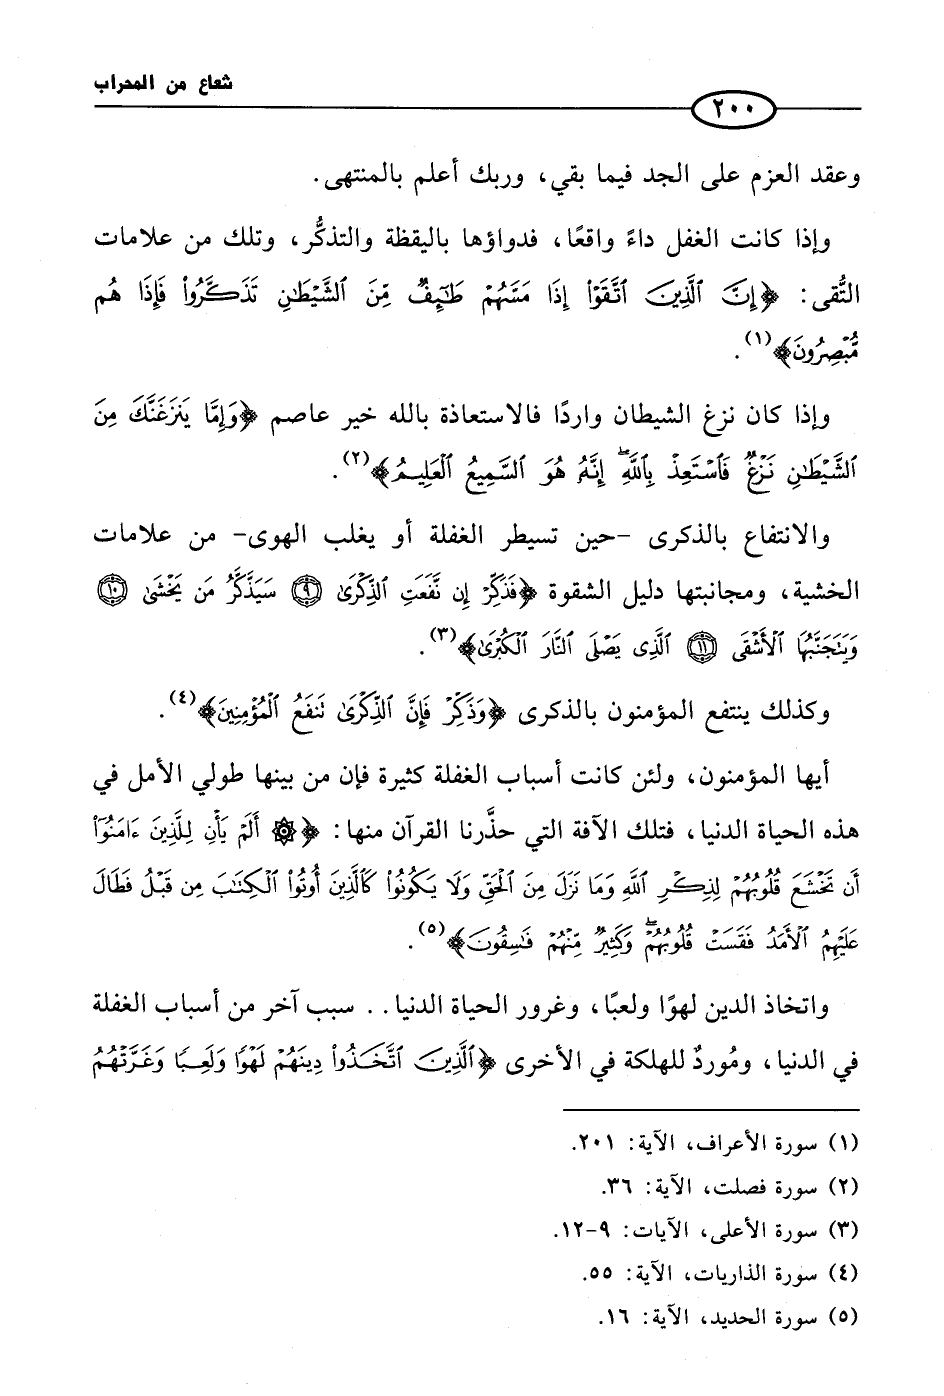 شعاع من المحراب
٢٠٠
وعقد العزم على الجد فيما بقي، وربك أعلم بالمنتهى.
وإذا كانت الغفل داءً واقعًا، فدواؤها باليقظة والتذكُّر، وتلك من علامات
التُّقى: ﴿إِنَّ ٱلَّذِينَ ٱتَّقَوۡاْ إِذَا مَسَّهُمۡ طَٰٓئِفٞ مِّنَ ٱلشَّيۡطَٰنِ تَذَكَّرُواْ فَإِذَا هُم
مُّبۡصِرُونَ﴾(١).
وإذا كان نزغ الشيطان واردًا فالاستعاذة بالله خير عاصم ﴿وَإِمَّا يَنزَغَنَّكَ مِنَ
ٱلشَّيۡطَٰنِ نَزۡغٞ فَٱسۡتَعِذۡ بِٱللَّهِۖ إِنَّهُۥ هُوَ ٱلسَّمِيعُ ٱلۡعَلِيمُ﴾(٢).
والانتفاع بالذكرى -حين تسيطر الغفلة أو يغلب الهوى- من علامات
الخشية، ومجانبتها دليل الشقوة ﴿فَذَكِّرۡ إِن نَّفَعَتِ ٱلذِّكۡرَىٰ ٩ سَيَذَّكَّرُ مَن يَخۡشَىٰ ١٠
وَيَتَجَنَّبُهَا ٱلۡأَشۡقَى ١١ ٱلَّذِي يَصۡلَى ٱلنَّارَ ٱلۡكُبۡرَىٰ﴾(٣).
وكذلك ينتفع المؤمنون بالذكرى ﴿وَذَكِّرۡ فَإِنَّ ٱلذِّكۡرَىٰ تَنفَعُ ٱلۡمُؤۡمِنِينَ﴾(٤).
أيها المؤمنون، ولئن كانت أسباب الغفلة كثيرة فإن من بينها طولي الأمل في
هذه الحياة الدنيا، فتلك الآفة التي حذَّرنا القرآن منها: ﴿۞ أَلَمۡ يَأۡنِ لِلَّذِينَ ءَامَنُوٓاْ
أَن تَخۡشَعَ قُلُوبُهُمۡ لِذِكۡرِ ٱللَّهِ وَمَا نَزَلَ مِنَ ٱلۡحَقِّ وَلَا يَكُونُواْ كَٱلَّذِينَ أُوتُواْ ٱلۡكِتَٰبَ مِن قَبۡلُ فَطَالَ
عَلَيۡهِمُ ٱلۡأَمَدُ فَقَسَتۡ قُلُوبُهُمۡۖ وَكَثِيرٞ مِّنۡهُمۡ فَٰسِقُونَ﴾(٥).
واتخاذ الدين لهوًا ولعبًا، وغرور الحياة الدنيا.. سبب آخر من أسباب الغفلة
في الدنيا، ومُوردٌ للهلكة في الأخرى ﴿ٱلَّذِينَ ٱتَّخَذُواْ دِينَهُمۡ لَهۡوٗا وَلَعِبٗا وَغَرَّتۡهُمُ
(١) سورة الأعراف، الآية: ٢٠١.
(٢) سورة فصلت، الآية: ٣٦.
(٣) سورة الأعلى، الآيات: ٩-١٢.
(٤) سورة الذاريات، الآية: ٥٥.
(٥) سورة الحديد، الآية: ١٦.